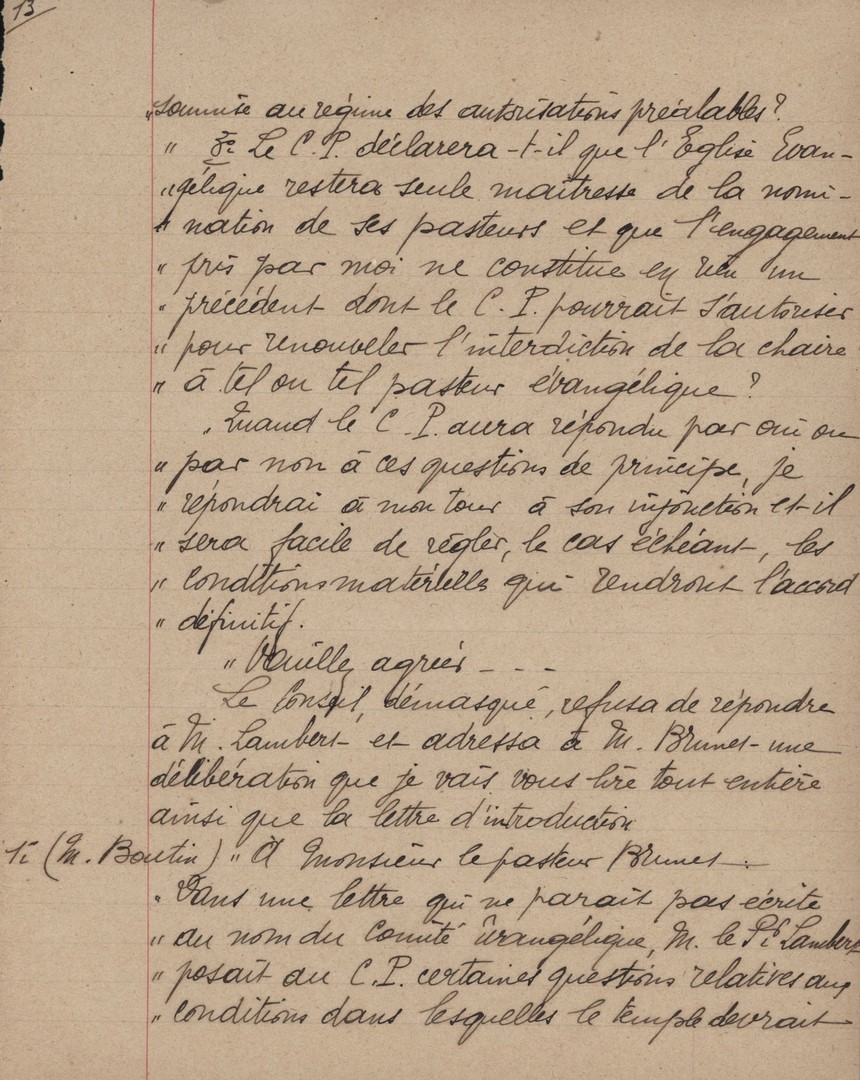 13
"soumise au régime des autorisations préalables?
" 3e Le C. P. déclarera-t-il que l'Eglise Evan-
"gélique restera seule maîtresse de la nomi-
" nation de ses pasteurs et que l'engagement
" pris par moi ne constitue en rien un
" précédent dont le C. P. pourrait s'autoriser
" pour renouveler l'interdiction de la chaire
" à tel ou tel pasteur évangélique?
" Quand le C. P. aura répondu par oui ou
" par non à ces questions de principe, je
" répondrai à mon tour à son injonction et il
" sera facile de régler, le cas échéant, les
" conditions matérielles qui rendront l'accord
" définitif.
" Veuillez agréer - - -
Le Conseil, démasqué, refusa de répondre
à M. Lambert et adressa à M. Brunet une
délibération que je vais vous lire tout entière
ainsi que la lettre d'introduction
(M. Boutin) " À Monsieur le pasteur Brunet :
" Dans une lettre qui ne parait pas écrite
" au nom du Comité Evangélique, M. le Pt Lambert
" posait au C. P. certaines questions relatives aux
" conditions dans lesquelles le temple devrait